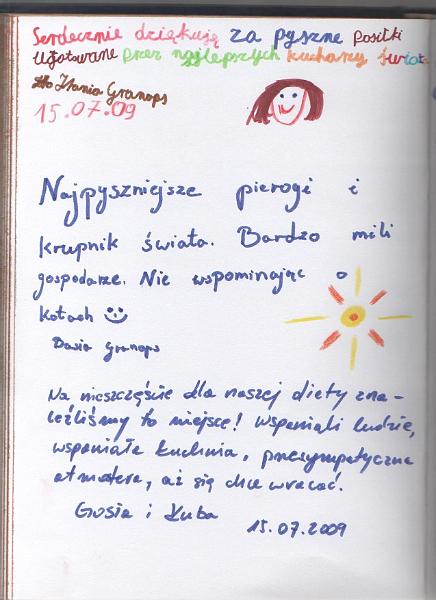 Serdecznie dziękuję za pyszne posiłki
ugotowane przez najlepszych kucharzy świata
Hania Granops
15.07.09
Najpyszniejsze pierogi i
krupnik świata. Bardzo mili
gospodarze. Nie wspominając o
kotach
Basia Granops
Na nieszczęście dla naszej diety zna-
leźliśmy to miejsce! Wspaniali ludzie,
wspaniała kuchnia, przesympatyczna
atmosfera, aż się chce wracać.
Gosia i Kuba
15.07.2009